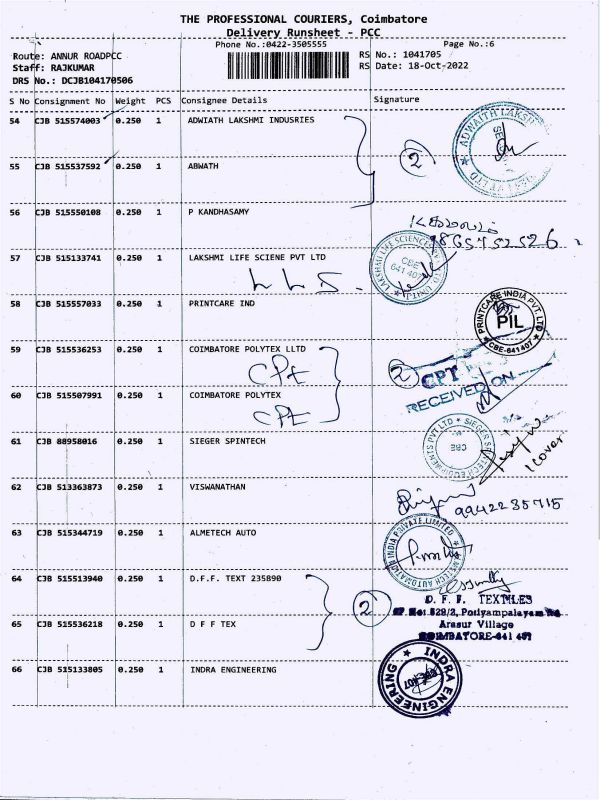 THE PROFESSIONAL COURIERS, Coimbatore
Delivery Runsheet - PCC
Phone No.:0422-3505555 Page No.:6
Route: ANNUR ROADPCC RS No.: 1041705
Staff: RAJKUMAR RS Date: 18-Oct-2022
DRS No.: DCJB104170506
S No Consignment No Weight PCS Consignee Details Signature
54 CJB 515574003 0.250 1 ADWIATH LAKSHMI INDUSRIES
2
55 CJB 515537592 0.250 1 ABWATH
56 CJB 515550108 0.250 1 P KANDHASAMY
9865752526
57 CJB 515133741 0.250 1 LAKSHMI LIFE SCIENE PVT LTD
LAKSHMI LIFE SCIENCES
CBE
641 407
L L S.
58 CJB 515557033 0.250 1 PRINTCARE IND
PRINTCARE INDIA PVT. LTD
PIL
CBE-641407
59 CJB 515536253 0.250 1 COIMBATORE POLYTEX LLTD
CPt
2 CPT
RECEIVED ON
60 CJB 515507991 0.250 1 COIMBATORE POLYTEX
CPt
61 CJB 88958016 0.250 1 SIEGER SPINTECH
SIEGER SPINTECH EQUIPMENTS PVT LTD
CBE
1 cover
62 CJB 513363873 0.250 1 VISWANATHAN
9942285715
63 CJB 515344719 0.250 1 ALMETECH AUTO
64 CJB 515513940 0.250 1 D.F.F. TEXT 235890
2 D. F. F. TEXTILES
SF.No: 529/2, Pottyampalayam Rd
Arasur Village
COIMBATORE-641 407
65 CJB 515536218 0.250 1 D F F TEX
66 CJB 515133805 0.250 1 INDRA ENGINEERING
INDRA ENGINEERING